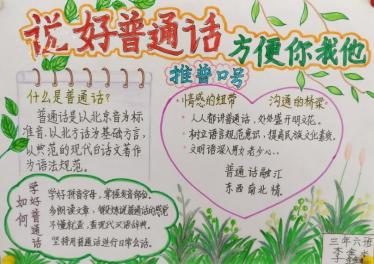 说好普通话
方便你我他
什么是普通话?
普通话是以北京音为标
准音,以北方话为基础方言,
以典范的现代白话文著作
为语法规范。
推普口号
情感的纽带 沟通的桥梁
人人都讲普通话,处处盛开明文花。
树立语言规范意识,提高民族文化素质。
文明语深入男女老少心..
普通话融汇
东西南北情.
如何
学好普通话
学好拼音字母,掌握发音部位。
为朗读文章,锻炼说普通话的感觉
不懂就查,查现代汉语辞典。
坚持用普通话进行日常会话。
三年六班